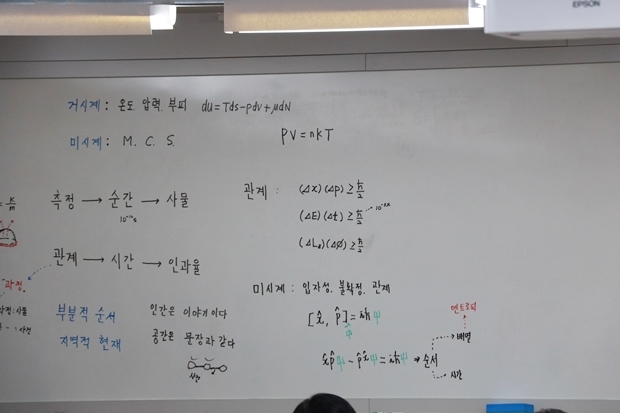 EPSON
거시계: 온도 압력 부피 du=Tds-pdv+μdN
미시계: M. C. S.
PV=nkT
측정 → 순간 → 사물
관계 → 시간 → 인과율
과정
부분적 순서
지역적 현재
인간은 이야기이다
공간은 문장과 같다
관계: (Δx)(Δp)≥ħ/2
(ΔE)(Δt)≥ħ/2
(ΔL)(Δφ)≥ħ/2
미시계: 입자성, 불확정, 관계
[x̂, p̂]ψ=iħψ
x̂p̂ψ-p̂x̂ψ=iħψ ⇒ 순서
엔트로피
배열
시간